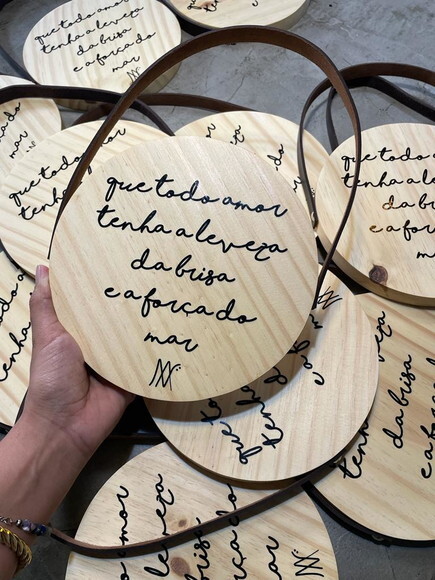 que todo amor
tenha a leveza
da brisa
e a força do
mar